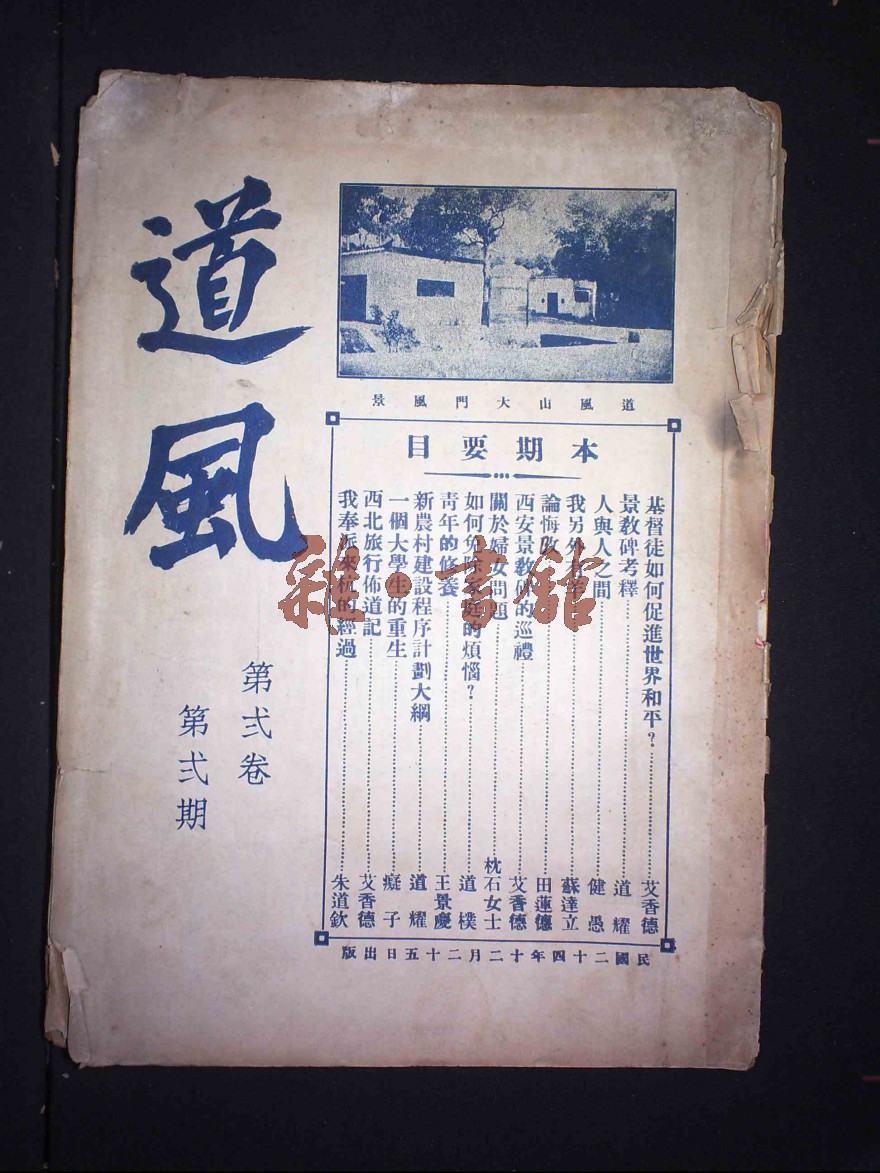 道風
第弍卷
第弍期
道風山大門風景
本期要目
基督徒如何促進世界和平?……艾香德
景教碑考釋……道耀
人與人之間……健愚
我另外有羊……蘇達立
論悔改……田蓮德
西安景教碑的巡禮……艾香德
關於婦女問題……枕石女士
如何免除家庭的煩惱?……道樸
青年的修養……王景慶
新農村建設程序計劃大綱……道耀
一個大學生的重生……癡子
西北旅行佈道記……艾香德
我奉派來杭的經過……朱道欽
民國二十四年十二月二十五日出版
雜·書館